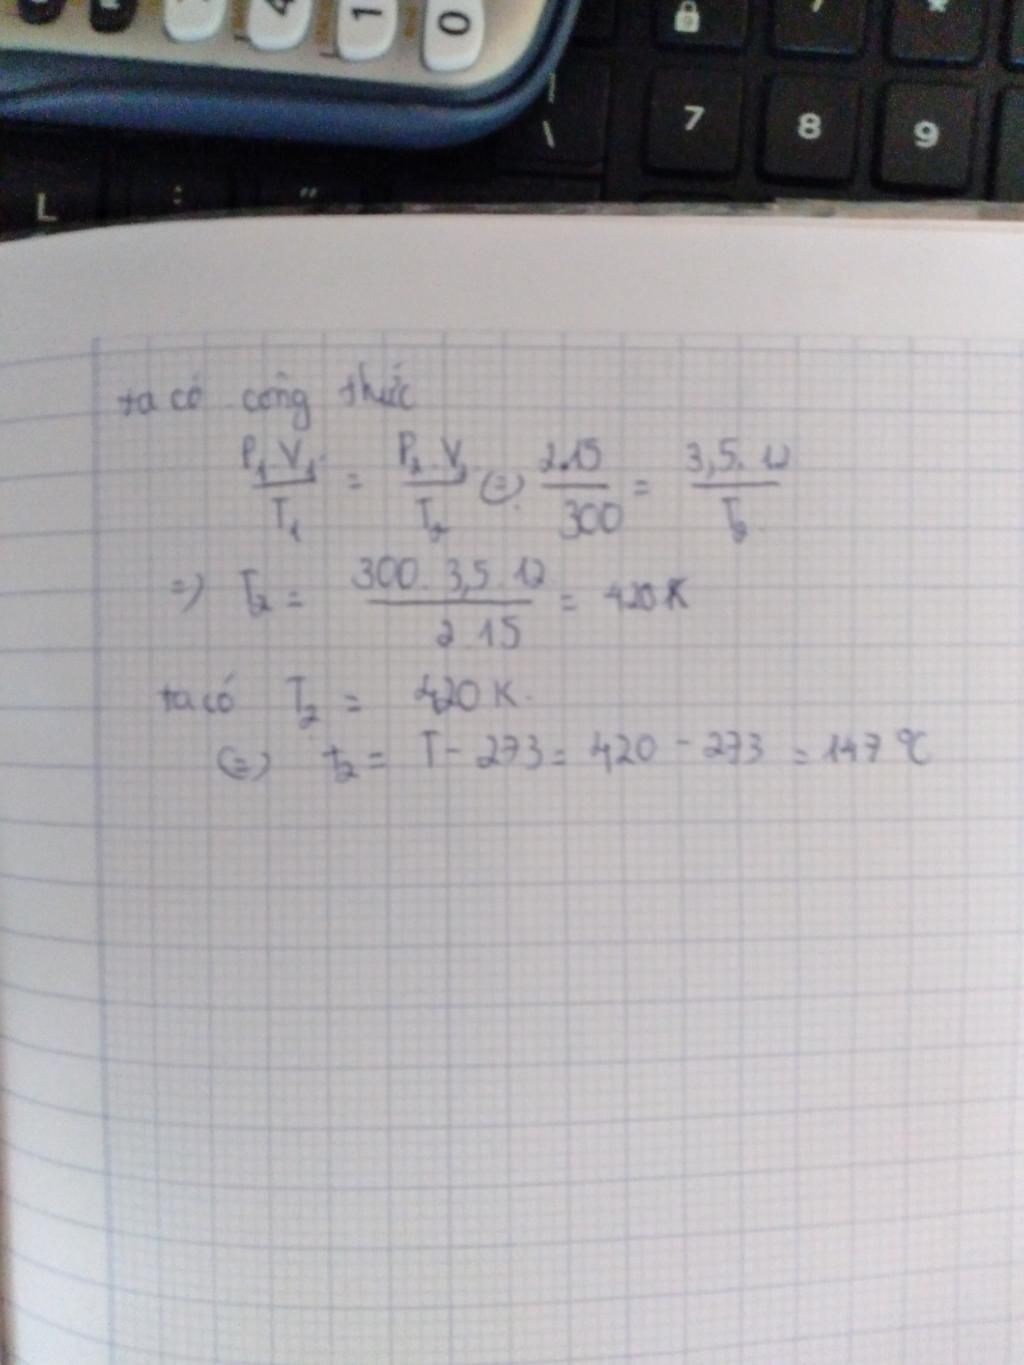 1 0
7 8 9
\
L : "
ta có công thức
P₁.V₁/T₁ = P₂.V₂/T₂ (=) 2.15/300 = 3,5.12/T₂
=) T₂ = 300.3,5.12/2.15 = 420K
ta có T₂ = 420K.
(=) t₂ = T - 273 = 420 - 273 = 147 °C